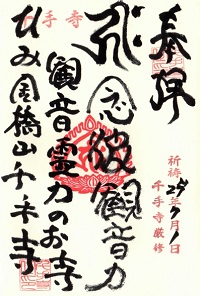 奉拝
祈祷
年7月1日
千手寺厳修
念彼観音力
観音霊力のお寺
千手寺
ひみ 橋山千手寺